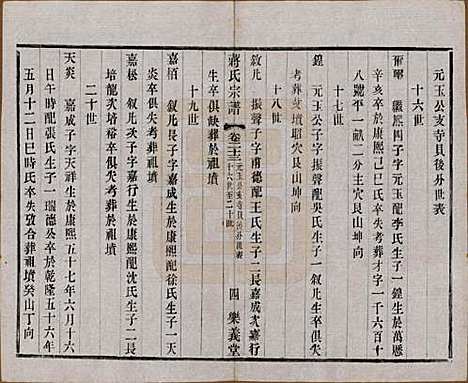 元玉公支寺貝後外世表
十六世
爾暉 繼熙四子字元玉配李氏生子一鍠生於萬歷
辛亥卒於康熙己巳氏卒失考葬才字一千六百十
八號平一畝二分主穴艮山坤向
十七世
鍠 元玉公子字振聲配吳氏生子一叙九生卒俱失
考葬茭墳昭穴艮山坤向
十八世
叙九 振聲子字甫德配王氏生子二長嘉成次嘉行
生卒俱缺葬於祖墳
十九世
蔣氏宗譜
卷二十三
元玉公支寺貝後外世表
十六世至二十世
四
樂義堂
嘉栢 叙九長子字嘉成生於康熙配徐氏生子一天
炎卒俱失考葬於祖墳
嘉松 叙九次子字嘉行生於康熙配沈氏生子二長
培龍次培裕卒俱失考葬於祖墳
二十世
天炎 嘉成子字天祥生於康熙五十七年六月十六
日午時配張氏生子一瑞德公卒於乾隆五十六年
五月十二日巳時氏卒失攷合葬祖墳癸山丁向